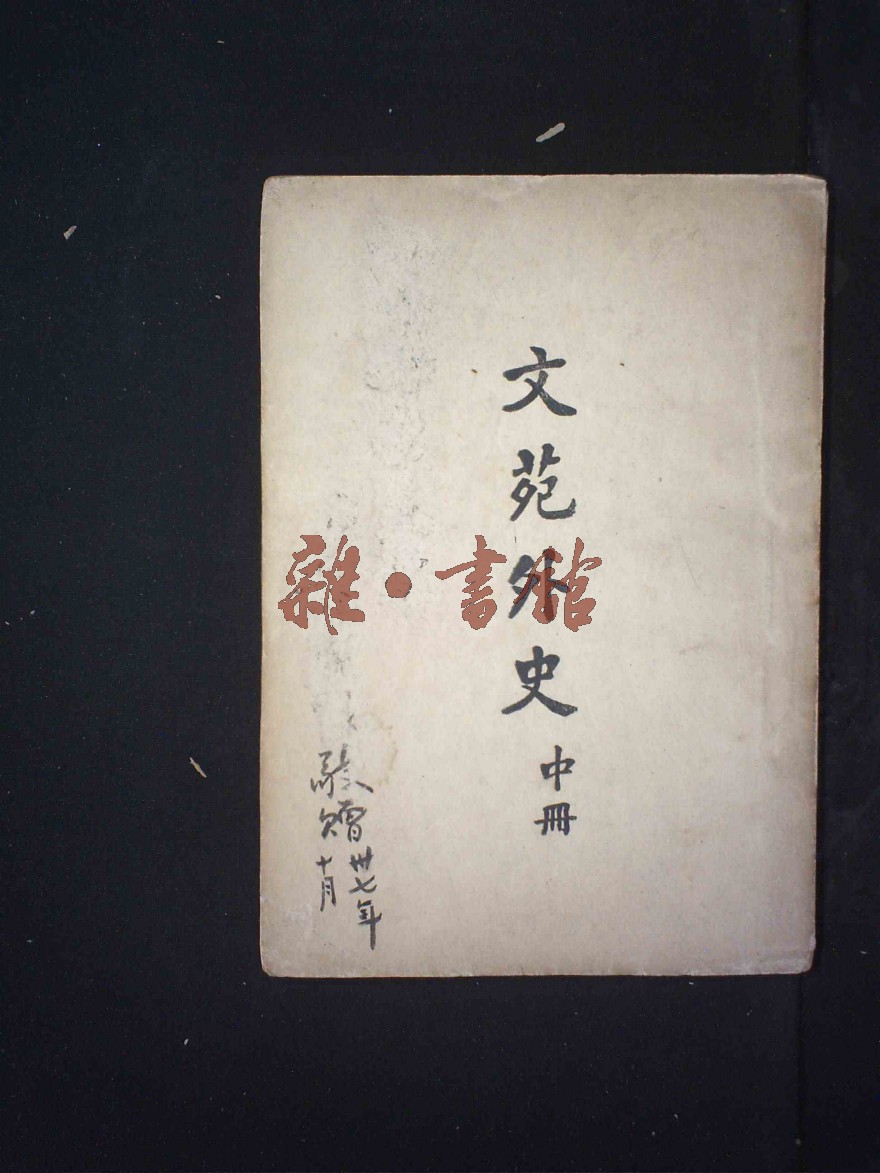 文苑外史
中冊
雜·書館
敬贈
卅七年
十月